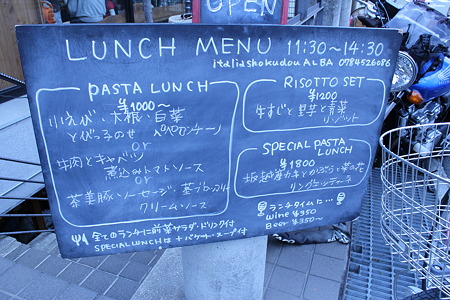 OPEN
LUNCH MENU 11:30~14:30
italiashokudou ALBA 0784526086
PASTA LUNCH
¥1000~
小えび、大根、白菜
とびっ子のせ ペペロンチーノ
or
牛肉とキャベツ
煮込みトマトソース
or
茶美豚ソーセージ、茎ブロッコリー
クリームソース
RISOTTO SET
¥1200
牛すじと里芋と青菜
リゾット
SPECIAL PASTA
LUNCH
¥1800
坂越産カキとからすみ 菜の花
リングイーネ
ランチタイムは…
wine ¥350
Beer ¥350~
全てのランチに前菜サラダ・ドリンク付
SPECIAL LUNCHは + バケット・スープ付